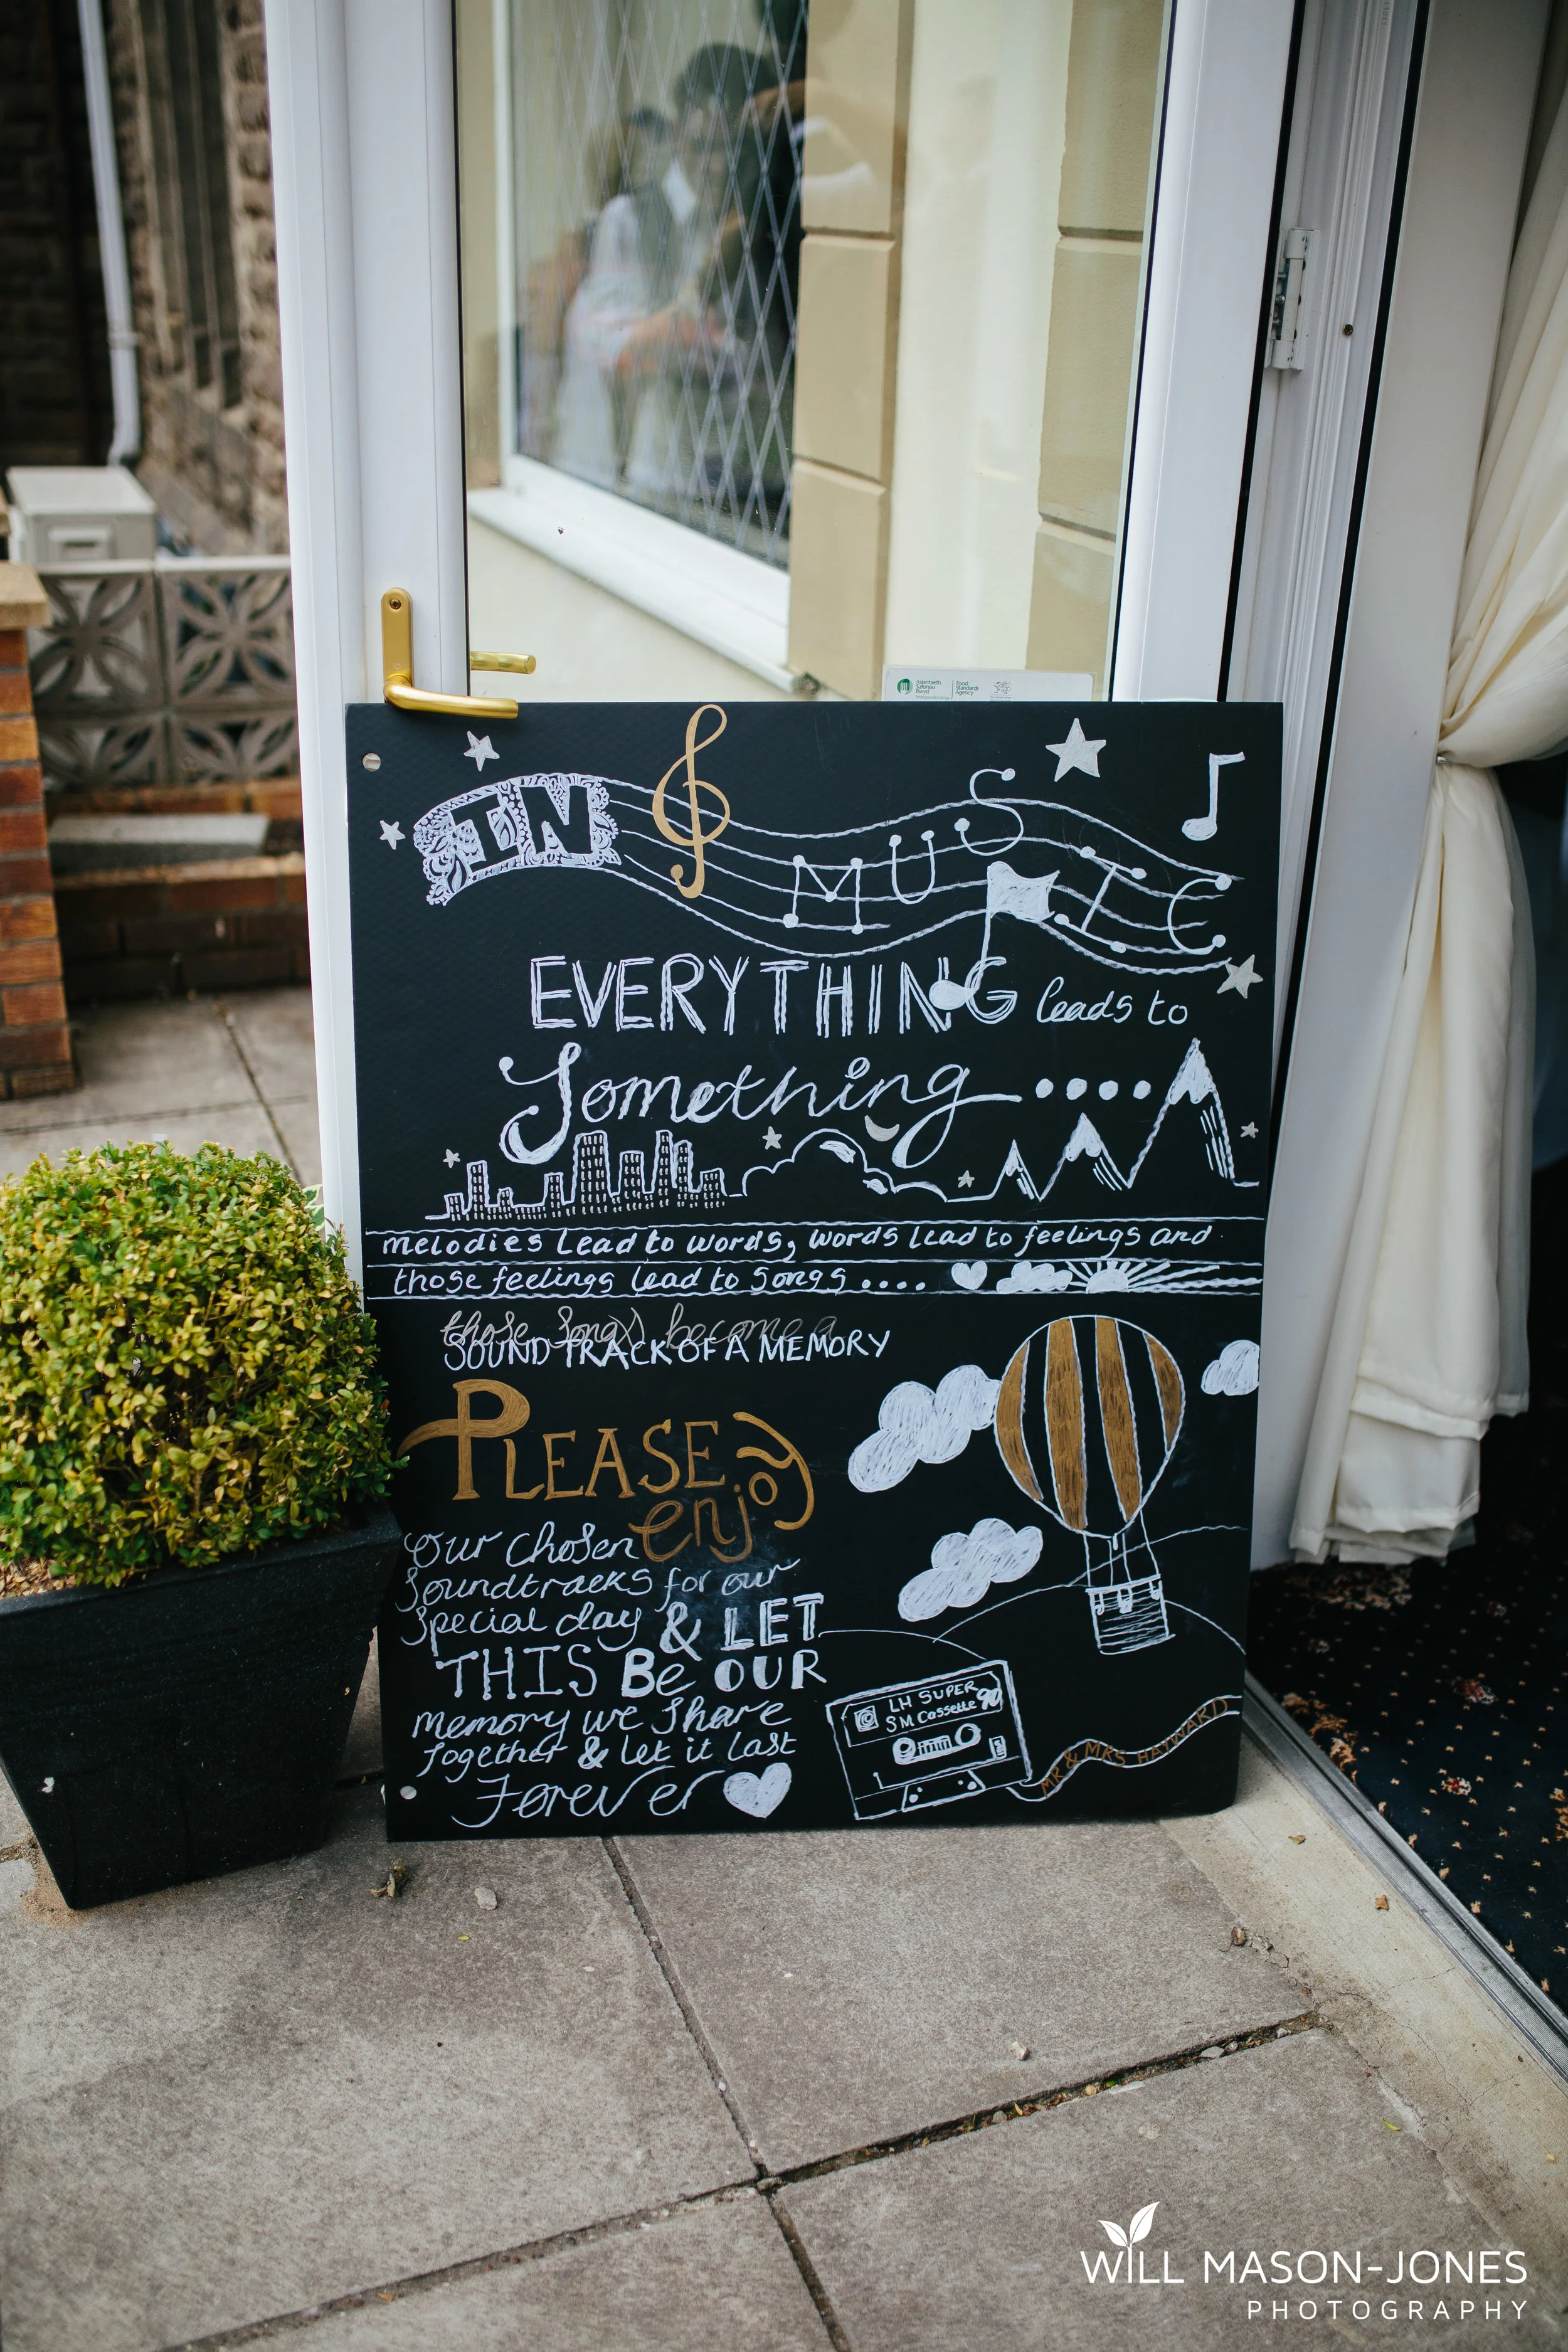 Asiantaeth
Safonau
Bwyd
Food
Standards
Agency
IN MUSIC
EVERYTHING leads to
Something....
melodies lead to words, words lead to feelings and
those feelings lead to songs....
those songs become a
SOUND TRACK OF A MEMORY
PLEASE
enjoy
our chosen
soundtracks for our
special day & LET
THIS Be OUR
memory we share
together & let it last
Forever
LH SUPER
SM Cassette 90
MR & MRS HAYWARD
WILL MASON-JONES
PHOTOGRAPHY